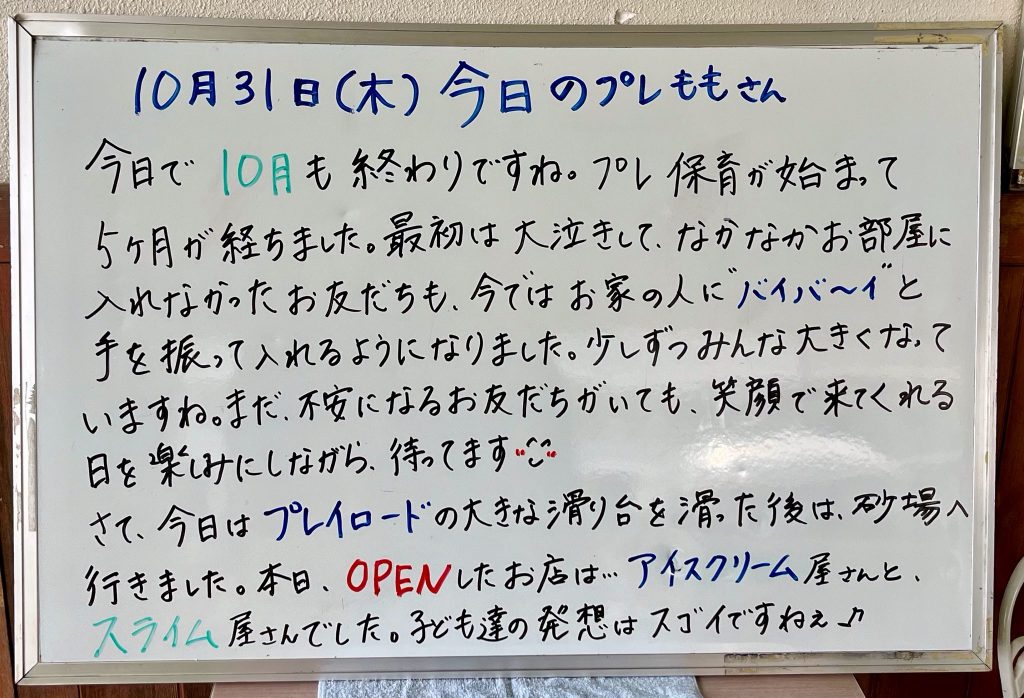 10月31日(木)今日のプレももさん
今日で10月も終わりですね。プレ保育が始まって
5ヶ月が経ちました。最初は大泣きして、なかなかお部屋に
入れなかったお友だちも、今ではお家の人に"バイバ〜イ"と
手を振って入れるようになりました。少しずつみんな大きくなって
いますね。まだ、不安になるお友だちがいても、笑顔で来てくれる
日を楽しみにしながら、待ってます
さて、今日はプレイロードの大きな滑り台を滑った後は、砂場へ
行きました。本日、OPENしたお店は…アイスクリーム屋さんと、
スライム屋さんでした。子ども達の発想はスゴイですねぇ♪